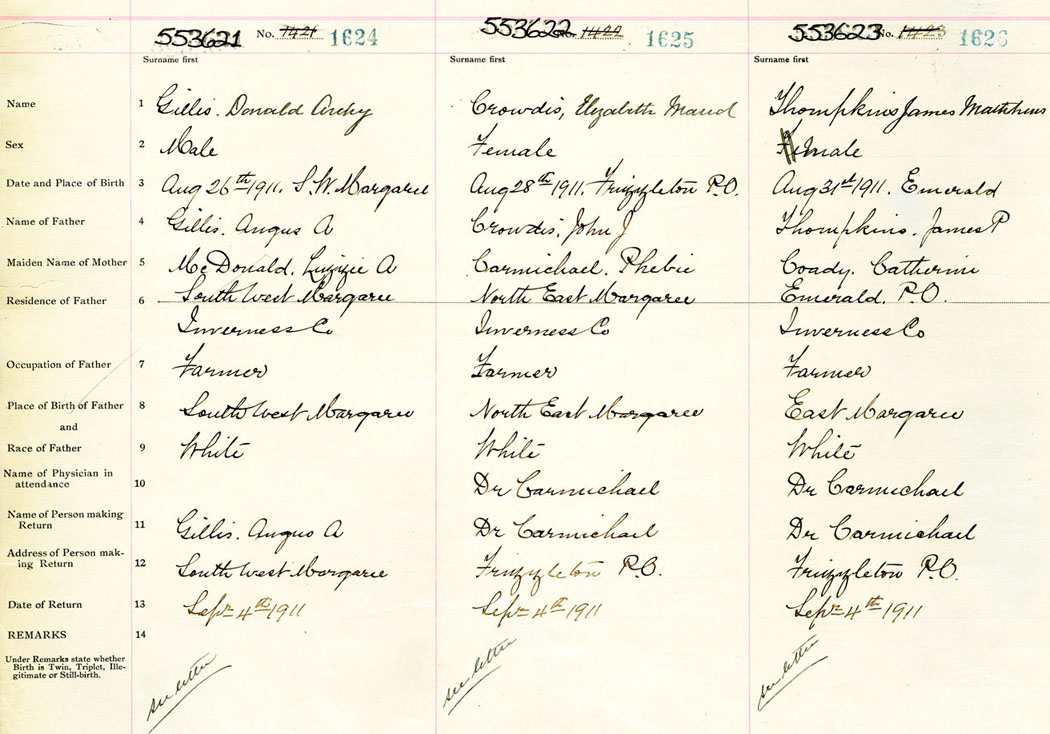 553621 No. 1421 1624 553622 No. 1422 1625 553623 No. 1423 1626
Surname first Surname first Surname first
Name 1 Gillis. Donald Archy Crowdis, Elizabeth Maud Thompkins James Matthews
Sex 2 Male Female Female
Date and Place of Birth 3 Aug 26th 1911. S.W. Margaree Aug 28th 1911. Frizzleton P.O. Aug 31st 1911. Emerald
Name of Father 4 Gillis. Angus A Crowdis, John J Thompkins. James P
Maiden Name of Mother 5 McDonald. Lizzie A Carmichael. Phebie Coady. Catherine
Residence of Father 6 South West Margaree North East Margaree Emerald. P.O.
Inverness Co Inverness Co Inverness Co
Occupation of Father 7 Farmer Farmer Farmer
Place of Birth of Father 8 South West Margaree North East Margaree East Margaree
and
Race of Father 9 White White White
Name of Physician in
attendance 10 Dr Carmichael Dr Carmichael
Name of Person making
Return 11 Gillis. Angus A Dr Carmichael Dr Carmichael
Address of Person mak-
ing Return 12 South West Margaree Frizzleton P.O. Frizzleton P.O.
Date of Return 13 Sepr 4th 1911 Sepr 4th 1911 Sepr 4th 1911
REMARKS 14
Under Remarks state whether
Birth is Twin, Triplet, Ille-
gitimate or Still-birth.
see letter see letter see letter